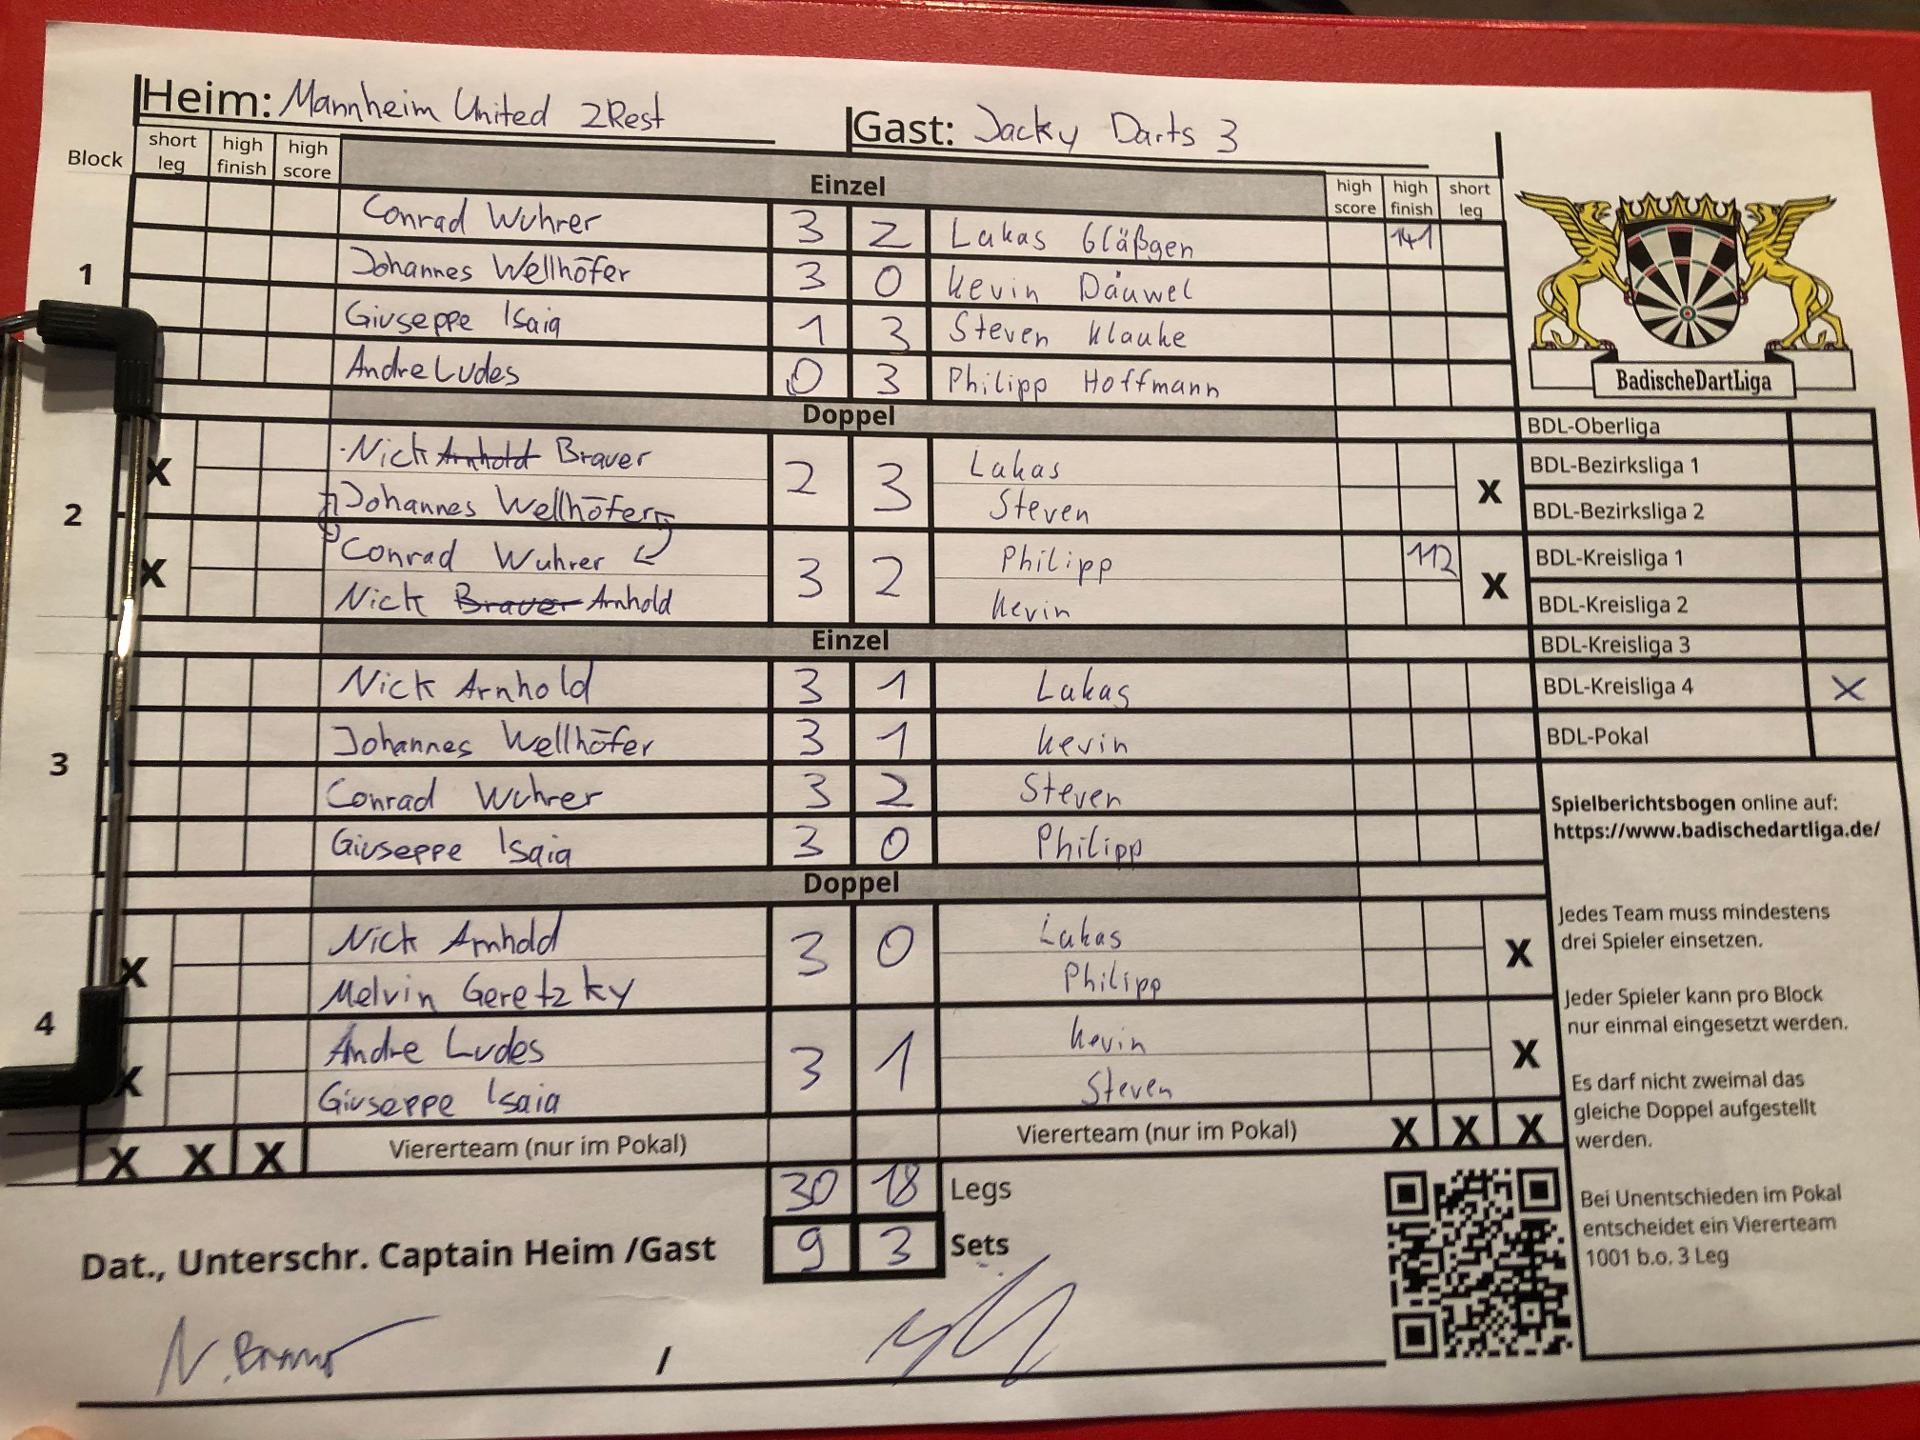 Heim: Mannheim United 2Rest Gast: Jacky Darts 3
Block short leg high finish high score Einzel high score high finish short leg
1
Conrad Wuhrer 3 2 Lukas Gläßgen 141
Johannes Wellhöfer 3 0 Kevin Däuwel
Giuseppe Isaia 1 3 Steven Klauke
Andre Ludes 0 3 Philipp Hoffmann
BadischeDartLiga
Doppel
2
X Nick Arnhold Brauer 2 3 Lukas X
Johannes Wellhöfer Steven
X Conrad Wuhrer 3 2 Philipp 112 X
Nick Brauer Arnhold Kevin
Einzel
3
Nick Arnhold 3 1 Lukas
Johannes Wellhöfer 3 1 Kevin
Conrad Wuhrer 3 2 Steven
Giuseppe Isaia 3 0 Philipp
Doppel
4
X Nick Arnhold 3 0 Lukas X
Melvin Geretzky Philipp
X Andre Ludes 3 1 Kevin X
Giuseppe Isaia Steven
X X X Viererteam (nur im Pokal) Viererteam (nur im Pokal) X X X
30 18 Legs
9 3 Sets
Dat., Unterschr. Captain Heim /Gast
N. Brauer /
BDL-Oberliga
BDL-Bezirksliga 1
BDL-Bezirksliga 2
BDL-Kreisliga 1
BDL-Kreisliga 2
BDL-Kreisliga 3
BDL-Kreisliga 4 X
BDL-Pokal
Spielberichtsbogen online auf:
https://www.badischedartliga.de/
Jedes Team muss mindestens
drei Spieler einsetzen.
Jeder Spieler kann pro Block
nur einmal eingesetzt werden.
Es darf nicht zweimal das
gleiche Doppel aufgestellt
werden.
Bei Unentschieden im Pokal
entscheidet ein Viererteam
1001 b.o. 3 Leg